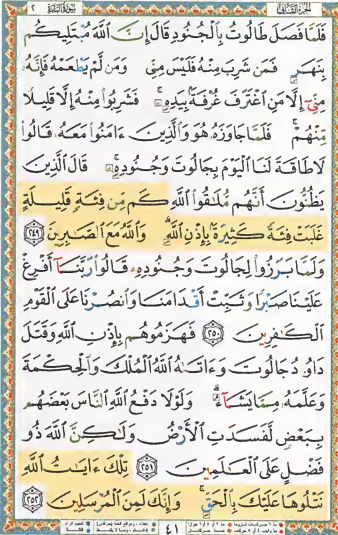 الجزء الثاني
سورة البقرة
٢
فَلَمَّا فَصَلَ طَالُوتُ بِٱلْجُنُودِ قَالَ إِنَّ ٱللَّهَ مُبْتَلِيكُم
بِنَهَرٍ فَمَن شَرِبَ مِنْهُ فَلَيْسَ مِنِّي وَمَن لَّمْ يَطْعَمْهُ فَإِنَّهُۥ
مِنِّيٓ إِلَّا مَنِ ٱغْتَرَفَ غُرْفَةًۢ بِيَدِهِۦۚ فَشَرِبُوا۟ مِنْهُ إِلَّا قَلِيلًا
مِّنْهُمْۚ فَلَمَّا جَاوَزَهُۥ هُوَ وَٱلَّذِينَ ءَامَنُوا۟ مَعَهُۥ قَالُوا۟
لَا طَاقَةَ لَنَا ٱلْيَوْمَ بِجَالُوتَ وَجُنُودِهِۦۚ قَالَ ٱلَّذِينَ
يَظُنُّونَ أَنَّهُم مُّلَـٰقُوا۟ ٱللَّهِ كَم مِّن فِئَةٍ قَلِيلَةٍ
غَلَبَتْ فِئَةً كَثِيرَةًۢ بِإِذْنِ ٱللَّهِۗ وَٱللَّهُ مَعَ ٱلصَّـٰبِرِينَ ٢٤٩
وَلَمَّا بَرَزُوا۟ لِجَالُوتَ وَجُنُودِهِۦ قَالُوا۟ رَبَّنَآ أَفْرِغْ
عَلَيْنَا صَبْرًا وَثَبِّتْ أَقْدَامَنَا وَٱنصُرْنَا عَلَى ٱلْقَوْمِ
ٱلْكَـٰفِرِينَ ٢٥٠ فَهَزَمُوهُم بِإِذْنِ ٱللَّهِ وَقَتَلَ
دَاوُۥدُ جَالُوتَ وَءَاتَىٰهُ ٱللَّهُ ٱلْمُلْكَ وَٱلْحِكْمَةَ
وَعَلَّمَهُۥ مِمَّا يَشَآءُۗ وَلَوْلَا دَفْعُ ٱللَّهِ ٱلنَّاسَ بَعْضَهُم
بِبَعْضٍ لَّفَسَدَتِ ٱلْأَرْضُ وَلَـٰكِنَّ ٱللَّهَ ذُو
فَضْلٍ عَلَى ٱلْعَـٰلَمِينَ ٢٥١ تِلْكَ ءَايَـٰتُ ٱللَّهِ
نَتْلُوهَا عَلَيْكَ بِٱلْحَقِّۚ وَإِنَّكَ لَمِنَ ٱلْمُرْسَلِينَ ٢٥٢
٤١